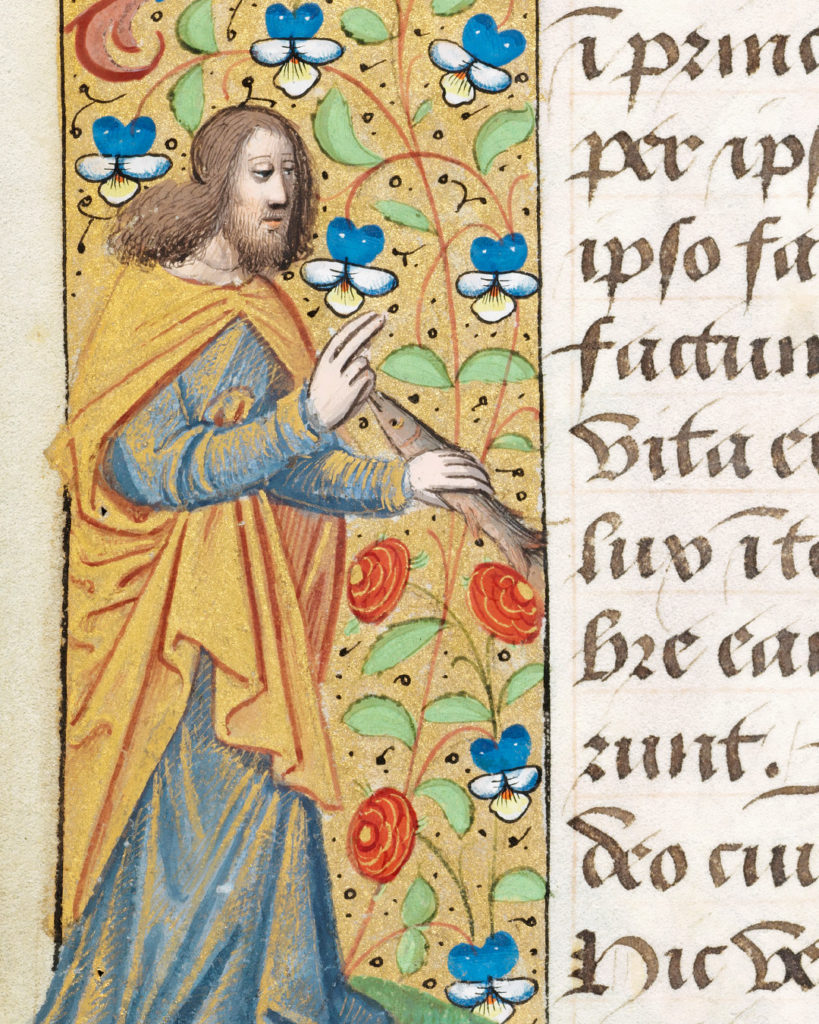 ī princ
per ipſ
ipſo fa
factum
vita e
lux ī te
bre ea
runt.
deo cui
Hic ve